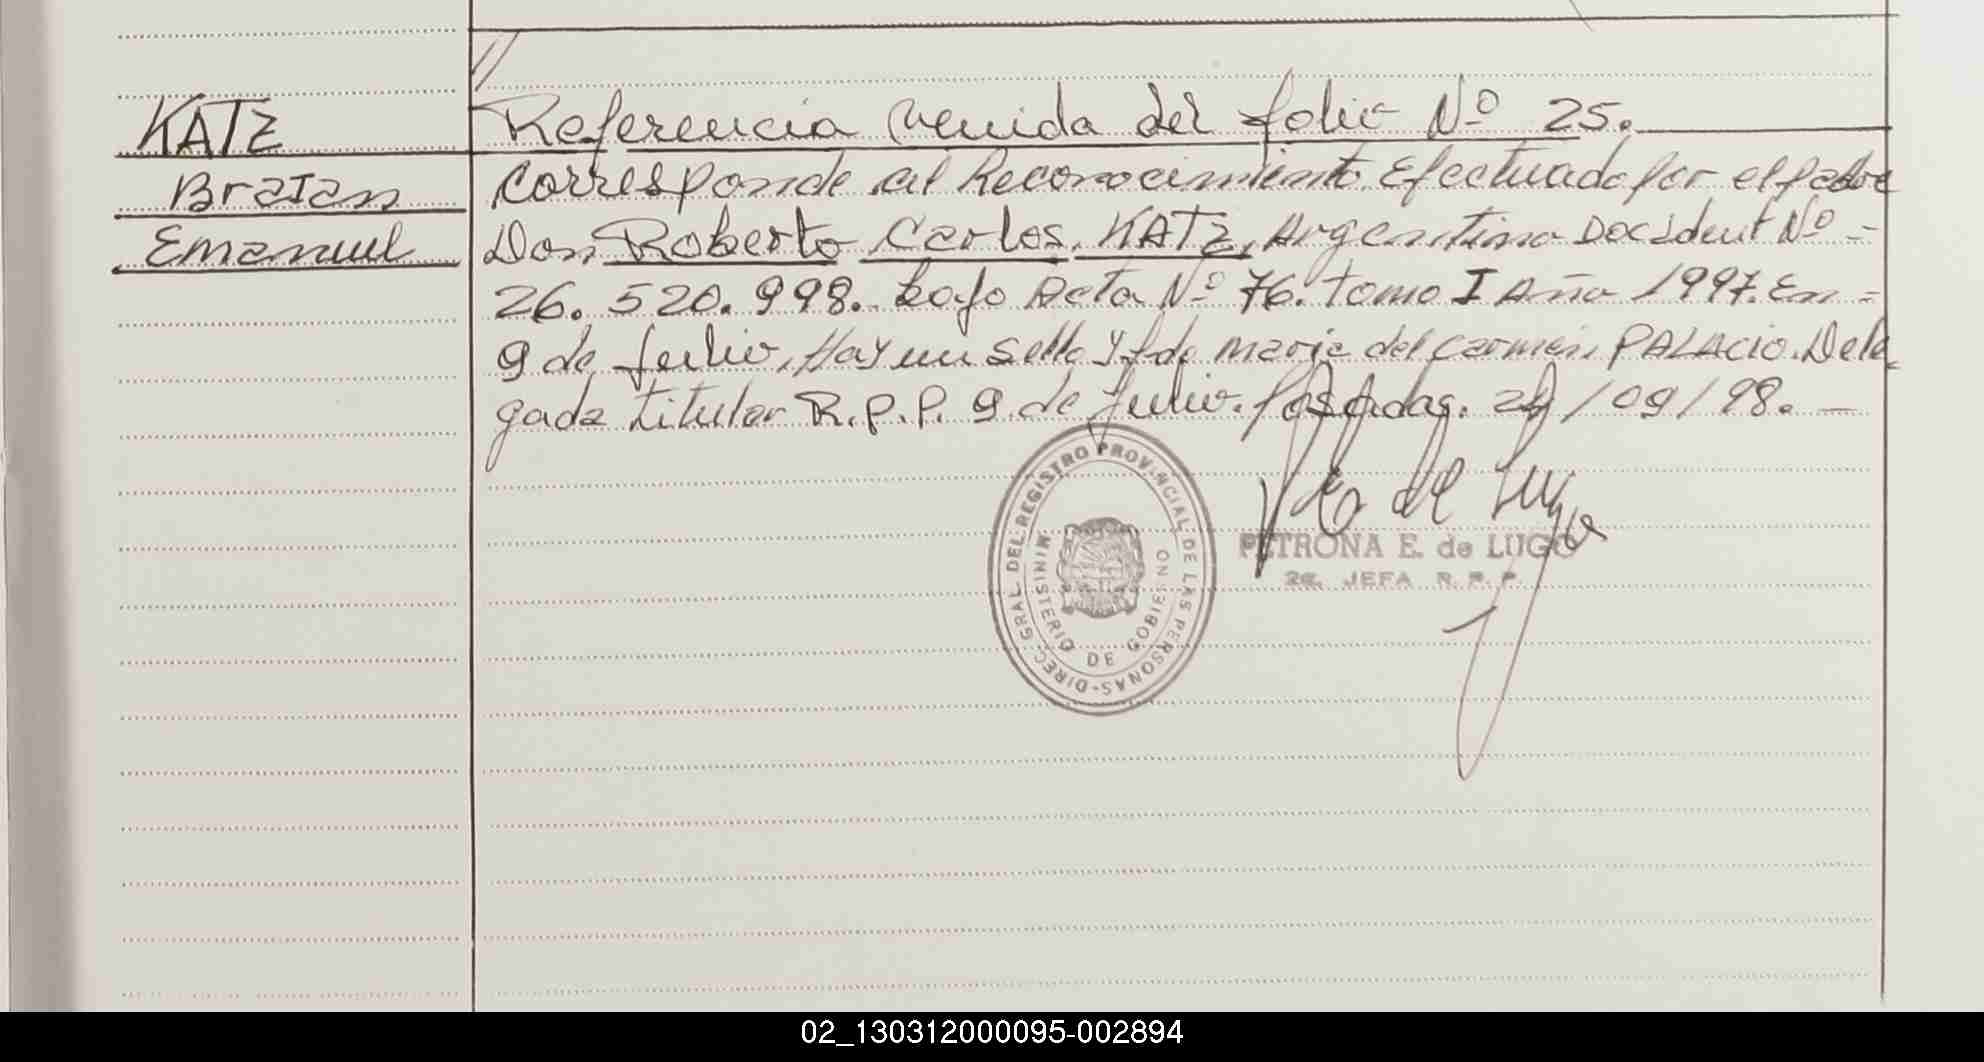 //
KATZ
Braian
Emanuel
Referencia venida del folio Nº 25.
Corresponde al Reconocimiento Efectuado por el padre
Don Roberto Carlos KATZ, Argentino Doc Ident Nº =
26.520.998. bajo Acta Nº 76. tomo I Año 1997. En =
9 de Julio, Hay un sello y fdo maria del carmen PALACIO. Dele
gada titular R.P.P. 9 de Julio. Posadas. /09/98. —
DIREC. GRAL. DEL REGISTRO PROVINCIAL DE LAS PERSONAS-
MINISTERIO DE GOBIERNO
PETRONA E. de LUGO
2a. JEFA R. P. P.
02_130312000095-002894